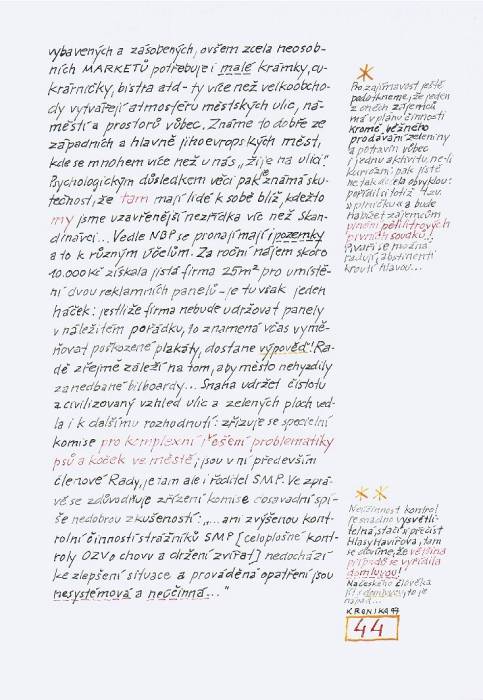 vybavených a zásobených, ovšem zcela neosob-
ních MARKETŮ potřebuje i malé krámky, cu-
krárničky, bistra atd - ty více než velkoobcho-
dy vytvářejí atmosféru městských ulic, ná-
městí a prostorů vůbec. Známe to dobře ze
západních a hlavně jihoevropských měst,
kde se mnohem více než u nás „žije na ulici".
Psychologickým důsledkem věci pak je známá sku-
tečnost, že tam mají lidé k sobě blíž, kdežto
my jsme uzavřenější nezřídka víc než Skan-
dinávci... Vedle NBP se pronajímají i pozemky
a to k různým účelům. Za roční nájem skoro
10.000 Kč získala jistá firma 25m² pro umístě-
ní dvou reklamních panelů - je tu však jeden
háček: jestliže firma nebude udržovat panely
v náležitém pořádku, to znamená včas vymě-
ňovat poškozené plakáty, dostane výpověď! Ra-
dě zřejmě záleží na tom, aby město nehyzdily
zanedbané bilboardy... Snaha udržet čistotu
a civilizovaný vzhled ulic a zelených ploch ved-
la i k dalšímu rozhodnutí: zřizuje se speciální
komise pro komplexní řešení problematiky
psů a koček ve městě; jsou v ní především
členové Rady, je tam ale i ředitel SMP. Ve zprá-
vě se zdůvodňuje zřízení komise dosavadní spí-
še nedobrou zkušeností: „...ani zvýšenou kont-
rolní činností strážníků SMP [celoplošné kont-
roly OZV o chovu a držení zvířat] nedochází
ke zlepšení situace a prováděná opatření jsou
nesystémová a neúčinná..."
Pro zajímavost ještě
podotkneme, že jeden
z oněch zájemců
má v plánu činnosti
kromě běžného
prodávání zeleniny
a potravin vůbec
i jednu aktivitu, ne-li
kuriózní pak jistě
ne tak docela obvyklou:
pořídil si totiž
plničku a bude
nabízet zájemcům
plnění pětilitrových
pivních soudků!
Pivaři se možná
radují, abstinenti
kroutí hlavou...
Neúčinnost kontrol
je snadno vysvětli-
telná, stačí si přečíst
Hlasy Havířova, tam
se dovíme, že většina
případů se vyřídila
domluvou!
Na českého člověka
jít s domluvou, to je
nápad...
KRONIKA 99
44